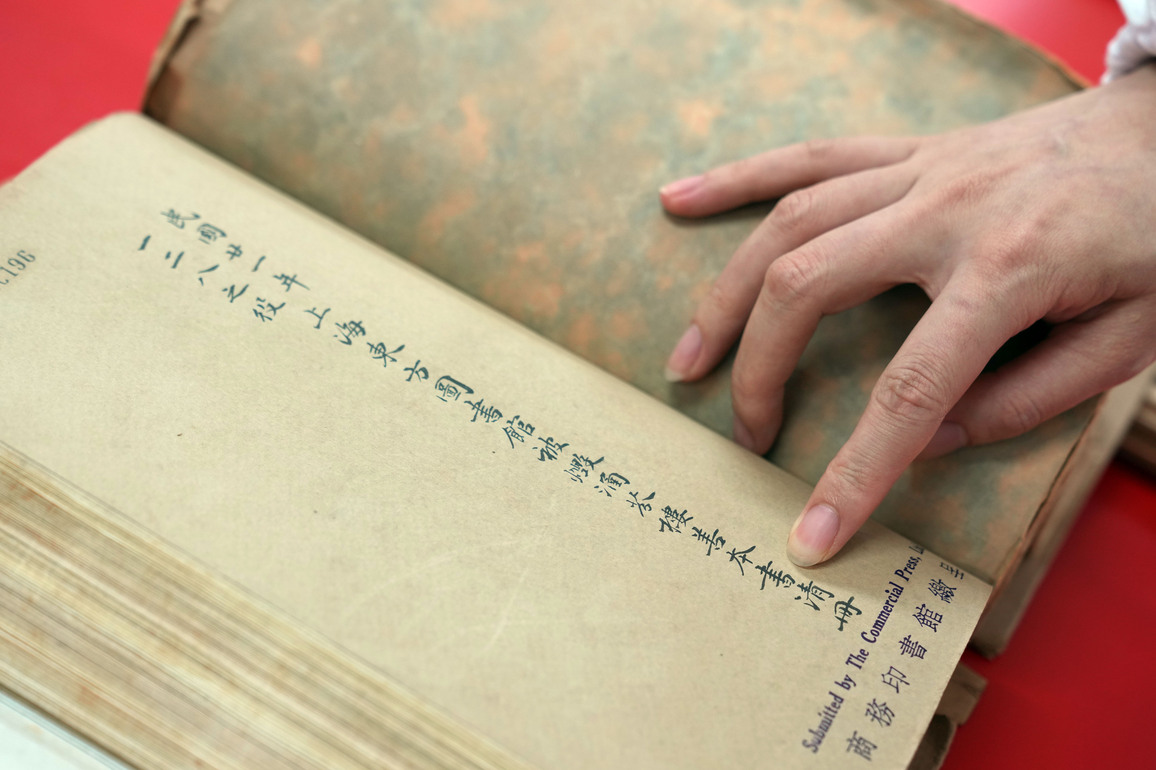 民國廿一年
一二八之役
上海東方圖書館被燬涵芬樓善本書清冊
Submitted by The Commercial Press,
商務印書館繳呈
196